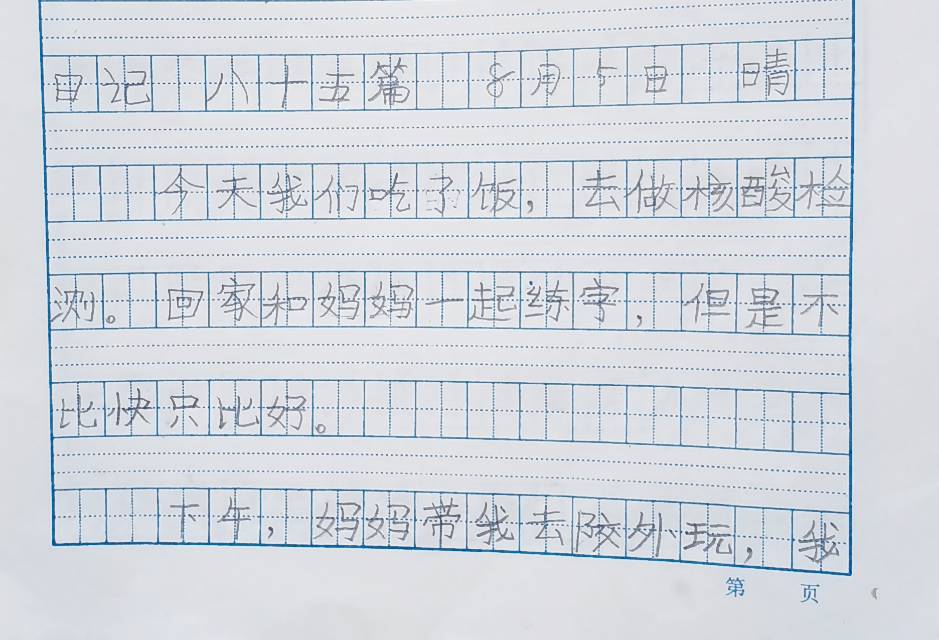 日记 八十五篇 8月5日 晴
今天我们吃了饭，去做核酸检
测。回家和妈妈一起练字，但是不
比快只比好。
下午，妈妈带我去外玩，我
第 页